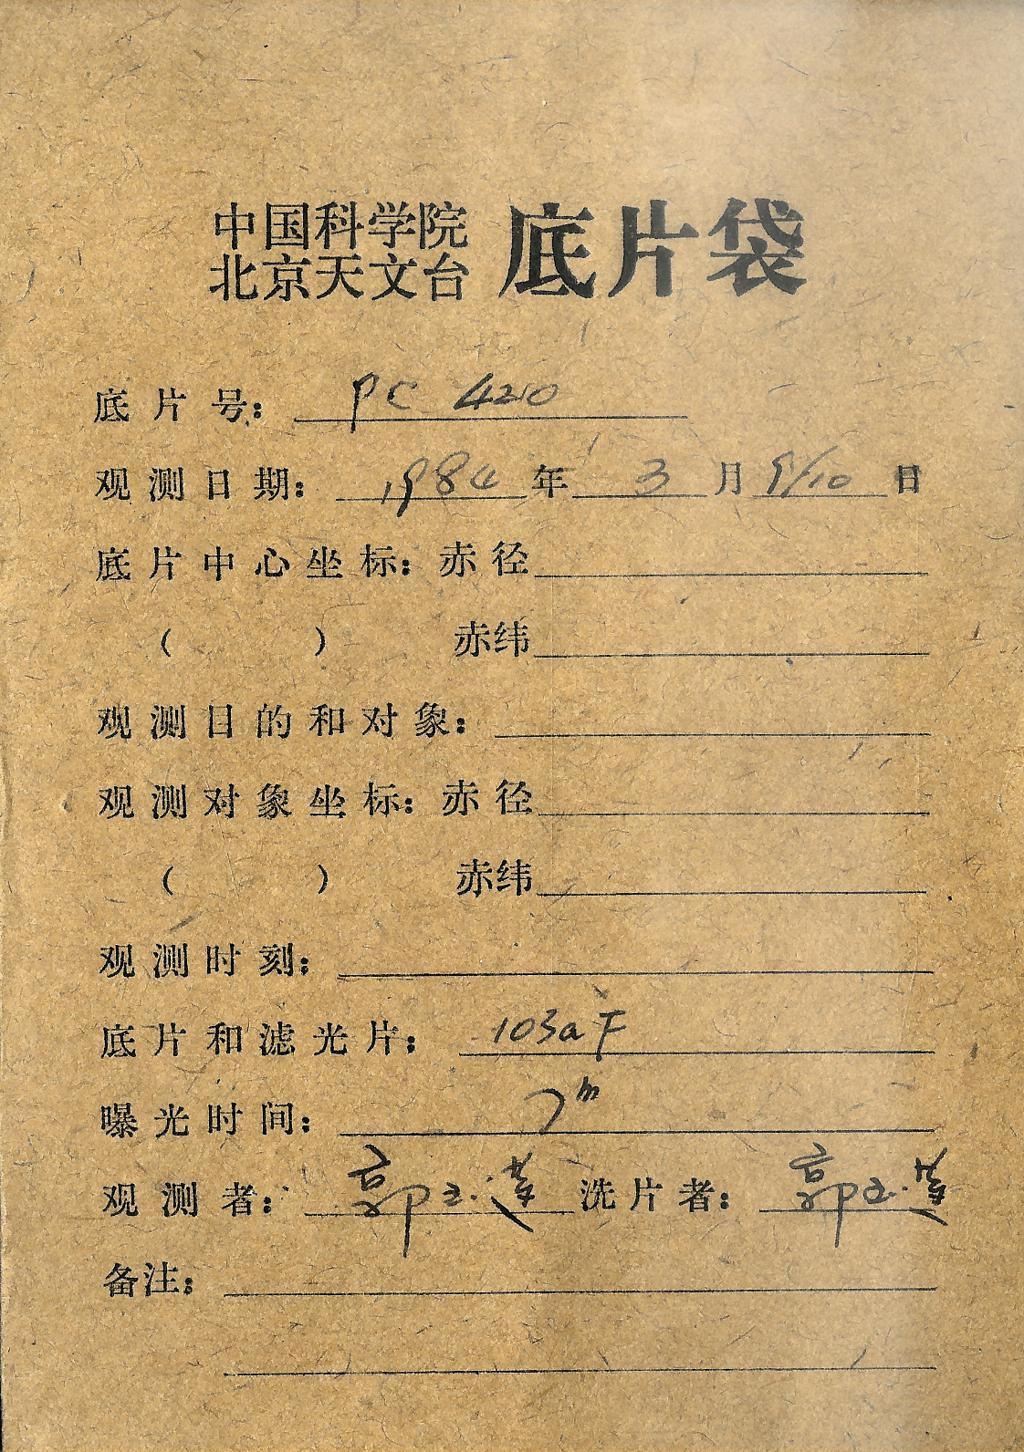 中国科学院
北京天文台 底片袋
底片号: PC 420
观测日期: 1984年 3月 9/10日
底片中心坐标: 赤径
( ) 赤纬
观测目的和对象:
观测对象坐标: 赤径
( ) 赤纬
观测时刻:
底片和滤光片: 103aF
曝光时间: 7m
观测者: 郭玉莲 洗片者: 郭玉莲
备注: